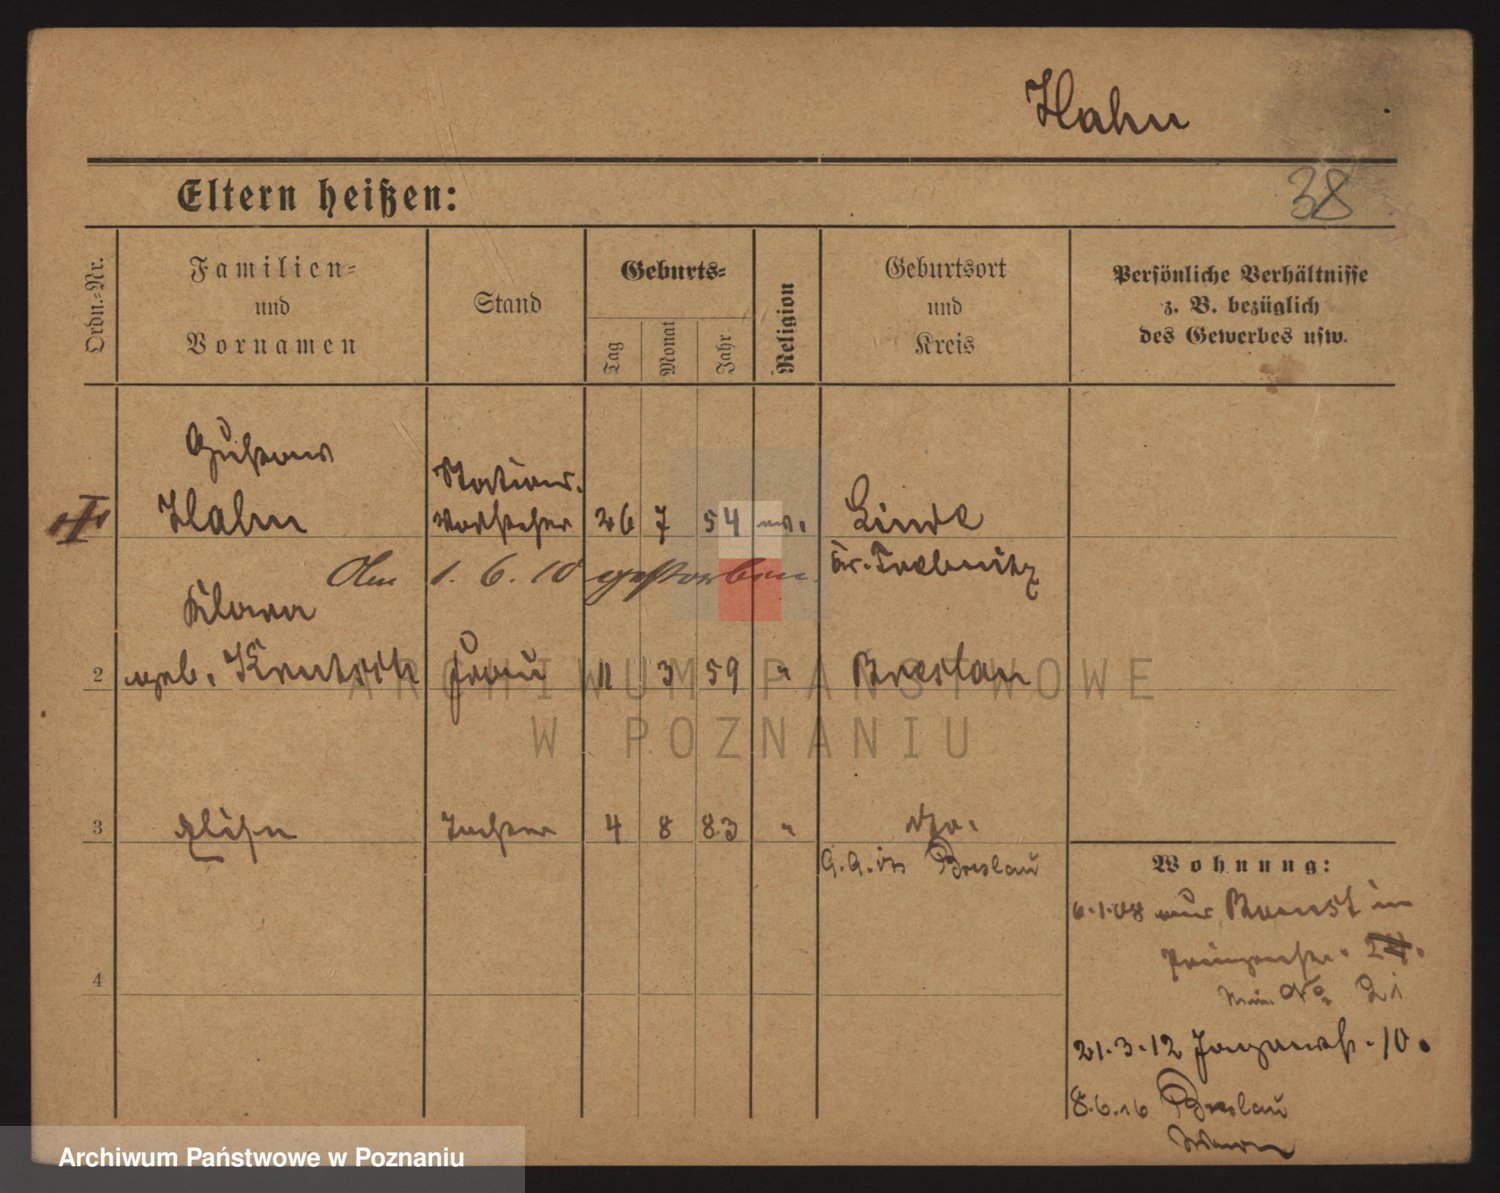 Hahn
38
Eltern heißen:
Ordn.-Nr.
Familien-
und
Vornamen
Stand
Geburts-
Tag
Monat
Jahr
Religion
Geburtsort
und
Kreis
Persönliche Verhältnisse
z. B. bezüglich
des Gewerbes usw.
Gustav
Hahn
Stations-
vorsteher
26 7 54 ev.
Linde
Kr. Trebnitz
Am 1. 6. 10 gestorben.
Klara
2 geb. Frau 11 3 59 " Breslau
3 Elise Tochter 4 8 83 " do.
G. A. in Breslau
Wohnung:
6.1.08 aus Bomst in
Prinzenstr.
No 21
4
21.3.12 10.
8.6.16 Breslau
ARCHIWUM PAŃSTWOWE
W POZNANIU
Archiwum Państwowe w Poznaniu